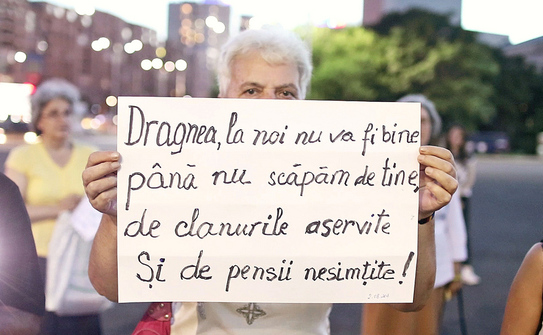 Dragnea, la noi nu va fi bine
până nu scăpăm de tine,
de clanurile aservite
Și de pensii nesimțite!